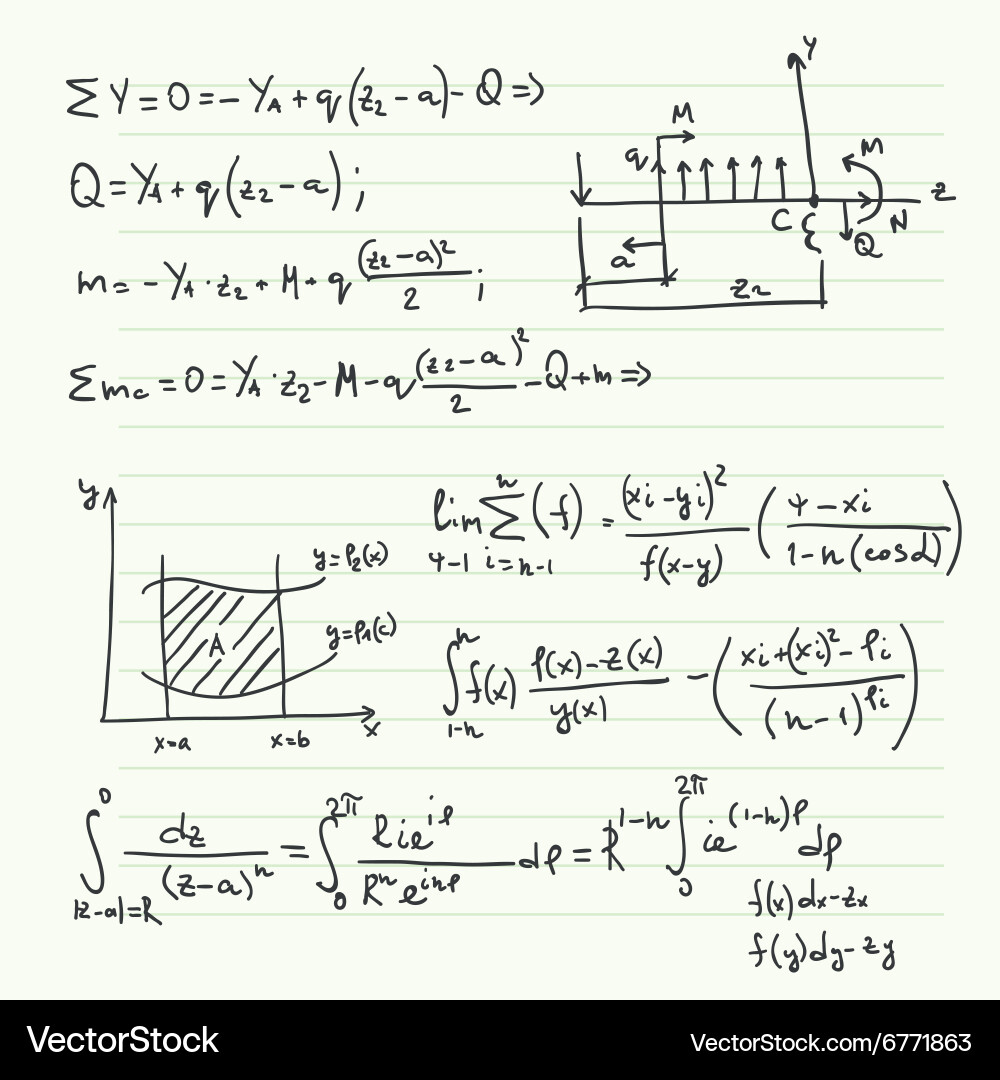 ∑ Y = 0 = - Y_A + q(z₂ - a) - Q =>
Q = Y_A + q(z₂ - a);
m = - Y_A · z₂ + M + q (z₂ - a)²/2;
∑ m_c = 0 = Y_A · z₂ - M - q (z₂ - a)²/2 - Q + m =>
Y
M
q
M
z
C
N
Q
a
z₂
y
y=f₂(x)
y=f₁(c)
A
x
x=a
x=b
lim ∑ (f) = (xi - yi)²/f(x-y) (4 - xi/1 - n(cosα))
n
4-1 i=n-1
∫ f(x) f(x) - z(x)/y(x) - (xi + (xi)² - fi/(n-1)^fi)
n
1-n
∫ dz/(z-a)ⁿ = ∫ Rie^iφ/Rⁿe^inφ dφ = R^1-n ∫ ie^(1-n)φ dφ
0
|z-a|=R
2π
0
2π
0
f(x)dx-zx
f(y)dy-zy
VectorStock
VectorStock.com/6771863